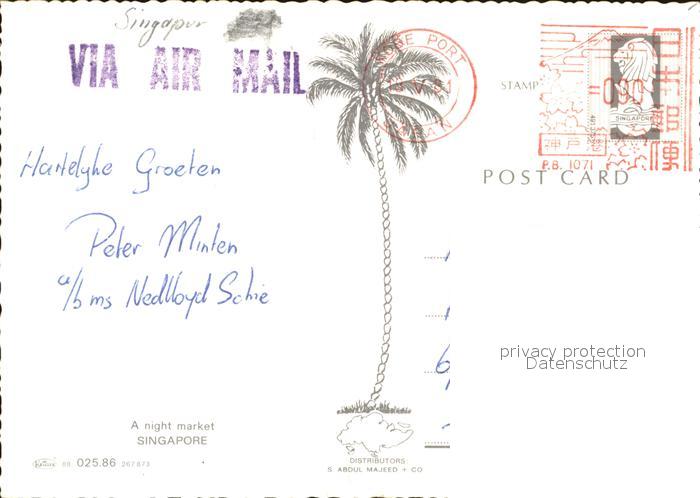 Singapur
VIA AIR MAIL
KOBE PORT
JAPAN
STAMP
=090=
SINGAPORE
神戸港
P.B. 1071
POST CARD
Hartelyke Groeten
Peter Minten
a/b ms Nedlloyd Schie
privacy protection
Datenschutz
A night market
SINGAPORE
025.86 267873
DISTRIBUTORS
S ABDUL MAJEED + CO